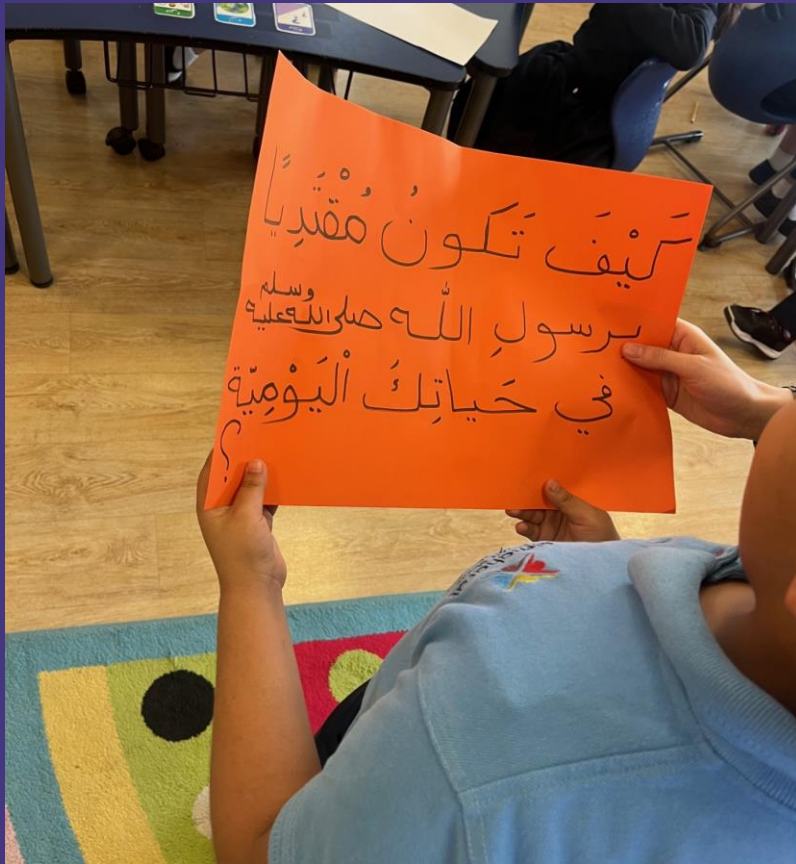 كَيْفَ تَكونُ مُقْتَدِيًا
برسولِ اللّه صلى الله عليه وسلم
في حَياتِكَ الْيَوْمِيّة
؟